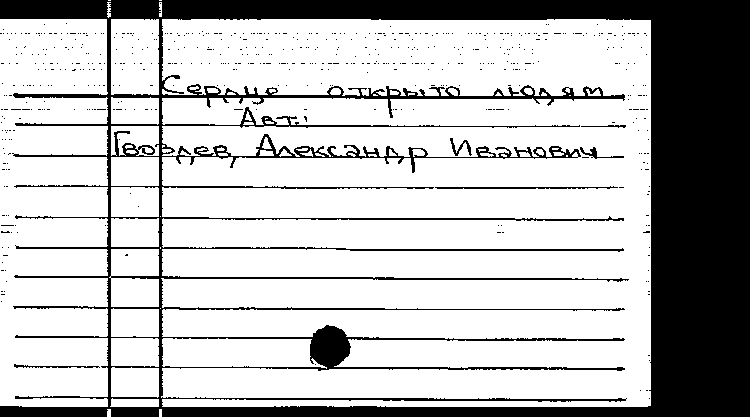 Сердце открыто людям
Авт.:
Гвоздев, Александр Иванович